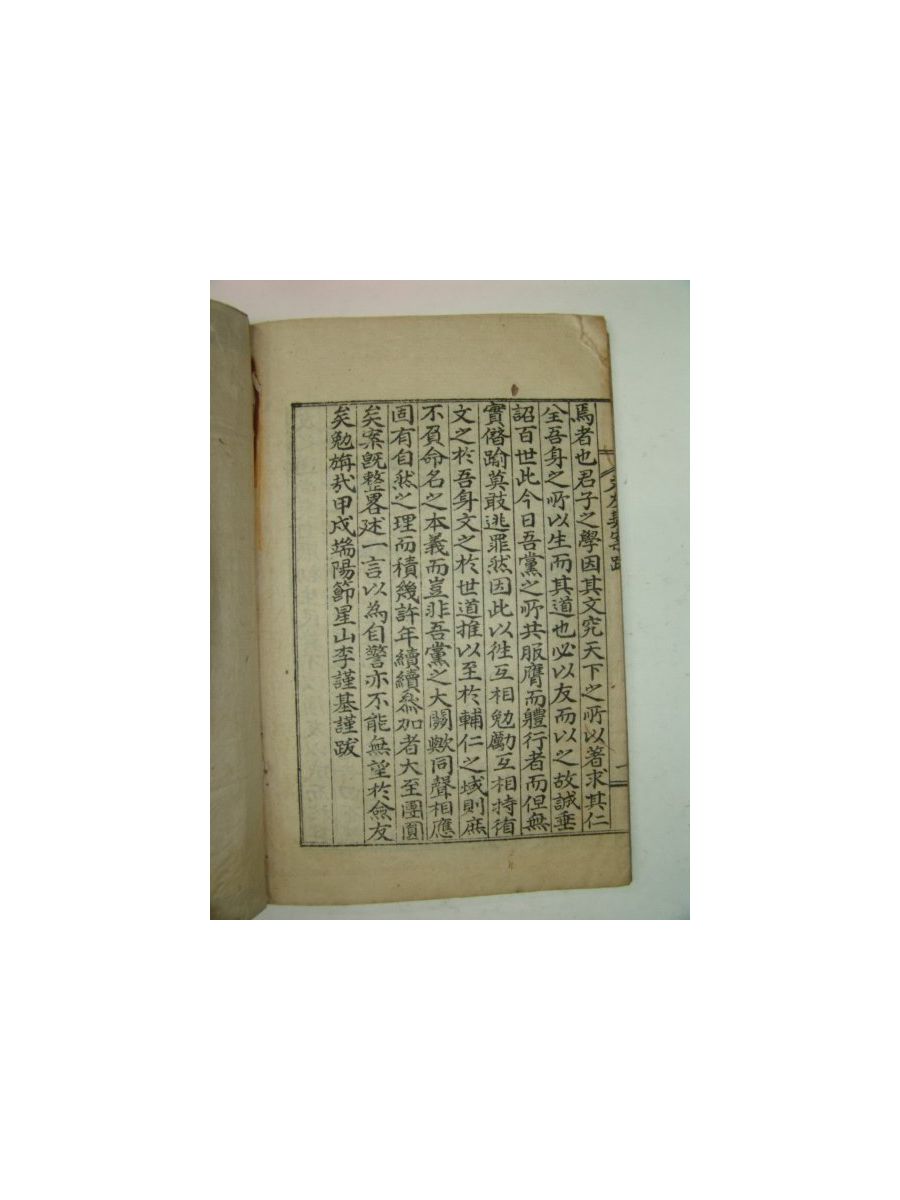 焉者也君子之學因其文究天下之所以著求其仁
全吾身之所以生而其道也必以友而以之故誠垂
詔百世此今日吾黨之所共服膺而軆行者而但無
實僭踰莫敢逃罪然因此以徃互相勉勵互相持循
文之於吾身文之於世道推以至於輔仁之域則庶
不負命名之本義而豈非吾黨之大關歟同聲相應
固有自然之理而積幾許年續續叅加者大至團圓
矣案旣整畧述一言以為自警亦不能無望於僉友
矣勉旃㢤甲戌端陽節星山李謹基謹跋
契案跋
一